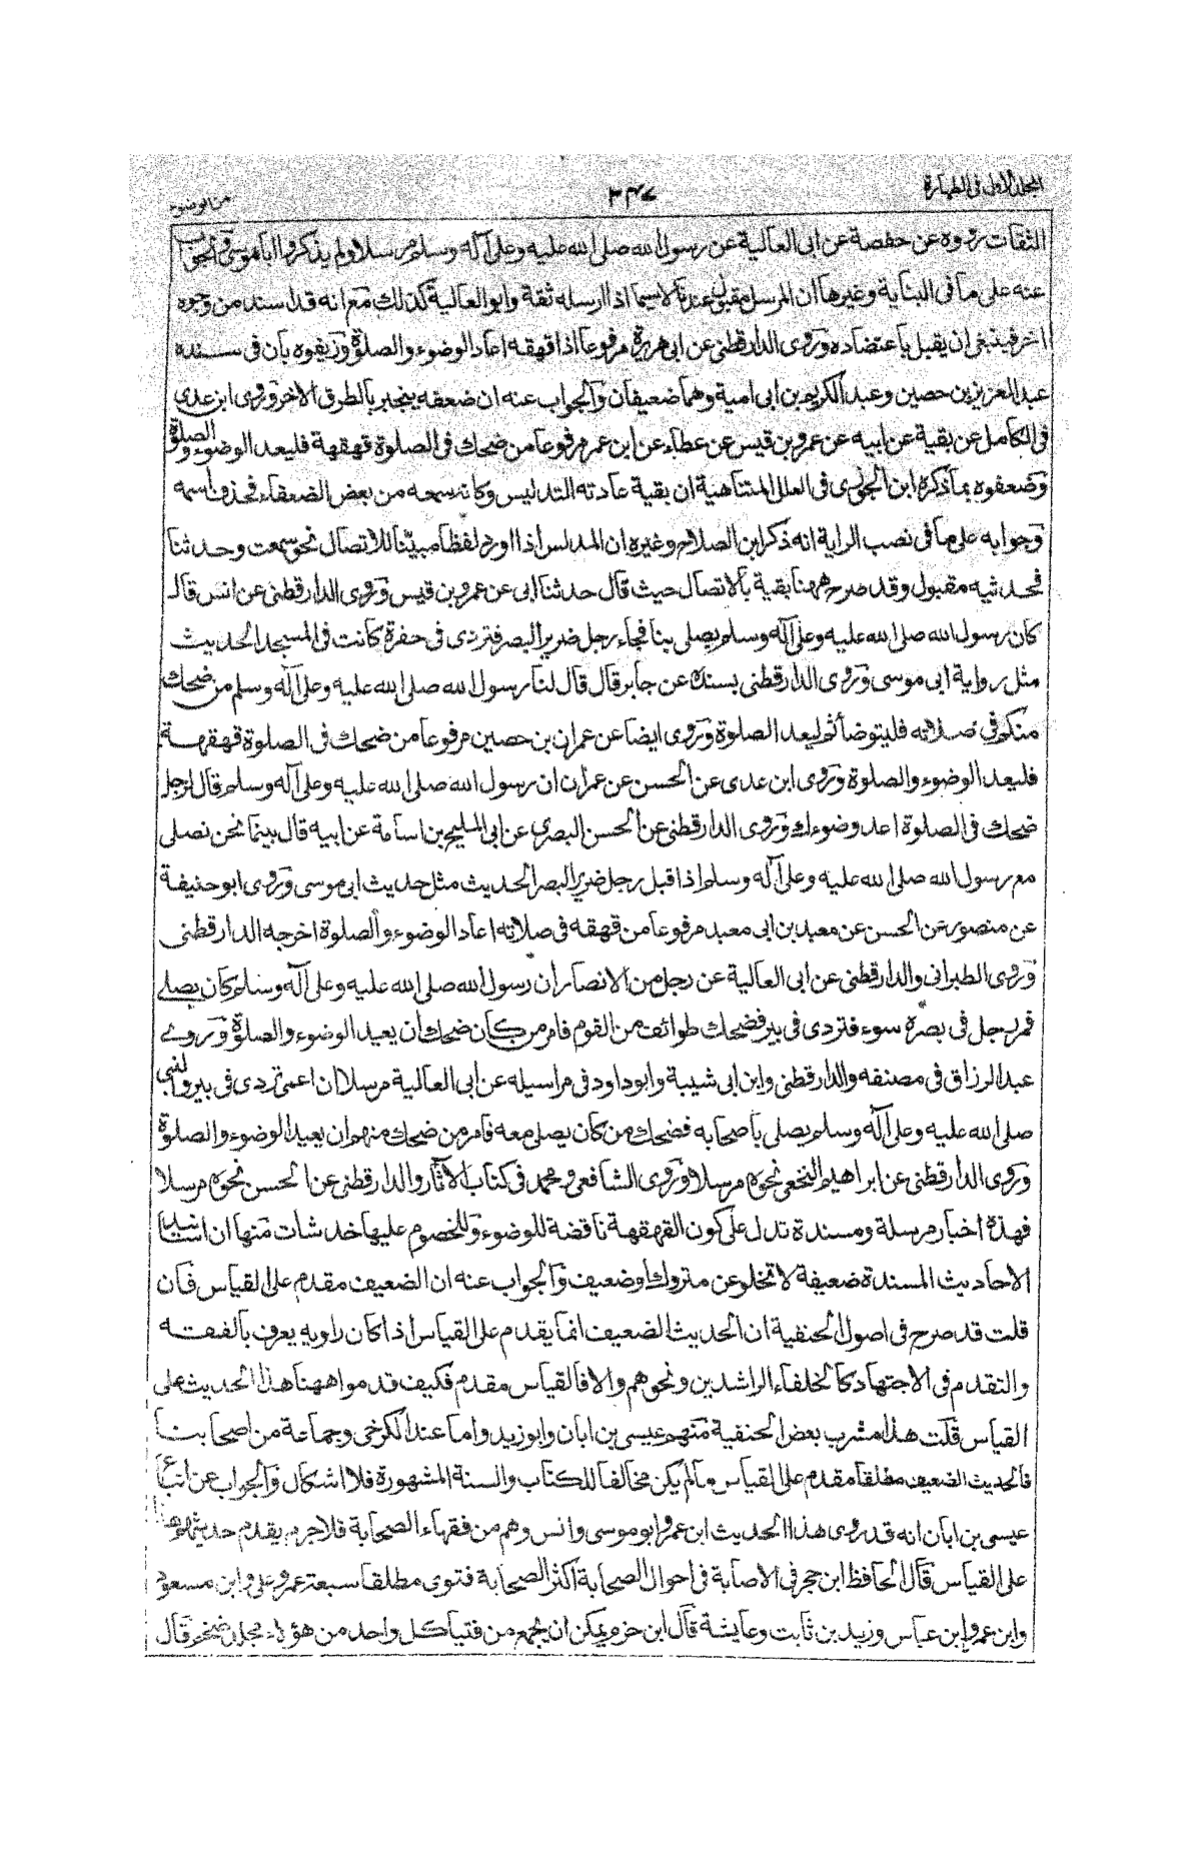 المجلد الاول فى الطهارة ٢٤٧ من الوضوء
الثقات رووه عن حفصة عن ابى العالية عن رسول الله صلى الله عليه وعلى آله وسلم مرسلا ولم يذكروا ابا موسى والجواب
عنه على ما فى البناية وغيرها ان المرسل مقبول عندنا لا سيما اذا ارسله ثقة وابو العالية كذلك مع انه قد اسند من وجوه
اخر فينبغى ان يقبل باعتضاده وروى الدارقطنى عن ابى هريرة مرفوعا اذا قهقه اعاد الوضوء والصلوة وزيفوه بان فى سنده
عبد العزيز بن حصين وعبد الكريم بن ابى امية وهما ضعيفان والجواب عنه ان ضعفه ينجبر بالطرق الاخر وروى ابن عدى
فى الكامل عن بقية عن ابيه عن عمرو بن قيس عن عطاء عن ابن عمر مرفوعا من ضحك فى الصلوة قهقهة فليعد الوضوء والصلوة
وضعفوه بما ذكره ابن الجوزى فى العلل المتناهية ان بقية عادته التدليس وكانه سمعه من بعض الضعفاء فحذف اسمه
وجوابه على ما فى نصب الراية انه ذكر ابن الصلاح وغيره ان المدلس اذا اورد لفظا مبينا للاتصال نحو سمعت وحدثنا
فحديثه مقبول وقد صرح ههنا بقية بالاتصال حيث قال حدثنا ابى عن عمرو بن قيس وروى الدارقطنى عن انس قال
كان رسول الله صلى الله عليه وعلى آله وسلم يصلى بنا فجاء رجل ضرير البصر فتردى فى حفرة كانت فى المسجد الحديث
مثل رواية ابى موسى وروى الدارقطنى بسنده عن جابر قال قال لنا رسول الله صلى الله عليه وعلى آله وسلم من ضحك
منكم فى صلاته فليتوضأ ثم ليعد الصلوة وروى ايضا عن عمران بن حصين مرفوعا من ضحك فى الصلوة قهقهة
فليعد الوضوء والصلوة وروى ابن عدى عن الحسن عن عمران ان رسول الله صلى الله عليه وعلى آله وسلم قال لرجل
ضحك فى الصلوة اعد وضوءك وروى الدارقطنى عن الحسن البصرى عن ابى المليح بن اسامة عن ابيه قال بينما نحن نصلى
مع رسول الله صلى الله عليه وعلى آله وسلم اذ اقبل رجل ضرير البصر الحديث مثل حديث ابى موسى وروى ابو حنيفة
عن منصور عن الحسن عن معبد بن ابى معبد مرفوعا من قهقه فى صلاته اعاد الوضوء والصلوة اخرجه الدارقطنى
وروى الطبرانى والدارقطنى عن ابى العالية عن رجل من الانصار ان رسول الله صلى الله عليه وعلى آله وسلم كان يصلى
فمر رجل فى بصره سوء فتردى فى بير فضحك طوائف من القوم فامر من كان ضحك ان يعيد الوضوء والصلوة وروى
عبد الرزاق فى مصنفه والدارقطنى وابن ابى شيبة وابو داود فى مراسيله عن ابى العالية مرسلا ان اعمى تردى فى بير والنبى
صلى الله عليه وعلى آله وسلم يصلى باصحابه فضحك من كان يصلى معه فامر من ضحك منهم ان يعيد الوضوء والصلوة
وروى الدارقطنى عن ابراهيم النخعى نحوه مرسلا وروى الشافعى ومحمد فى كتاب الآثار والدارقطنى عن الحسن نحوه مرسلا
فهذه اخبار مرسلة ومسندة تدل على كون القهقهة ناقضة للوضوء وللخصوم عليها خدشات منها ان اسانيد
الاحاديث المسندة ضعيفة لا تخلو عن متروك او ضعيف والجواب عنه ان الضعيف مقدم على القياس فان
قلت قد صرح فى اصول الحنفية ان الحديث الضعيف انما يقدم على القياس اذا كان راويه يعرف بالفقه
والتقدم فى الاجتهاد كالخلفاء الراشدين ونحوهم والا فالقياس مقدم فكيف قدموا ههنا هذا الحديث على
القياس قلت هذا مشرب بعض الحنفية منهم عيسى بن ابان وابو زيد واما عند الكرخى وجماعة من اصحابنا
فالحديث الضعيف مطلقا مقدم على القياس ما لم يكن مخالفا للكتاب والسنة المشهورة فلا اشكال والجواب عن اتباع
عيسى بن ابان انه قد روى هذا الحديث ابن عمر وابو موسى وانس وهم من فقهاء الصحابة فلا جرم يقدم حديثهم هذا
على القياس قال الحافظ ابن حجر فى الاصابة فى احوال الصحابة اكثر الصحابة فتوى مطلقا سبعة عمر وعلى وابن مسعود
وابن عمر وابن عباس وزيد بن ثابت وعايشة قال ابن حزم يمكن ان يجمع من فتيا كل واحد من هؤلاء مجلد ضخم قال